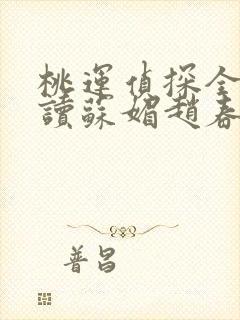 桃運偵探全
讀蘇媚趙春
普昌